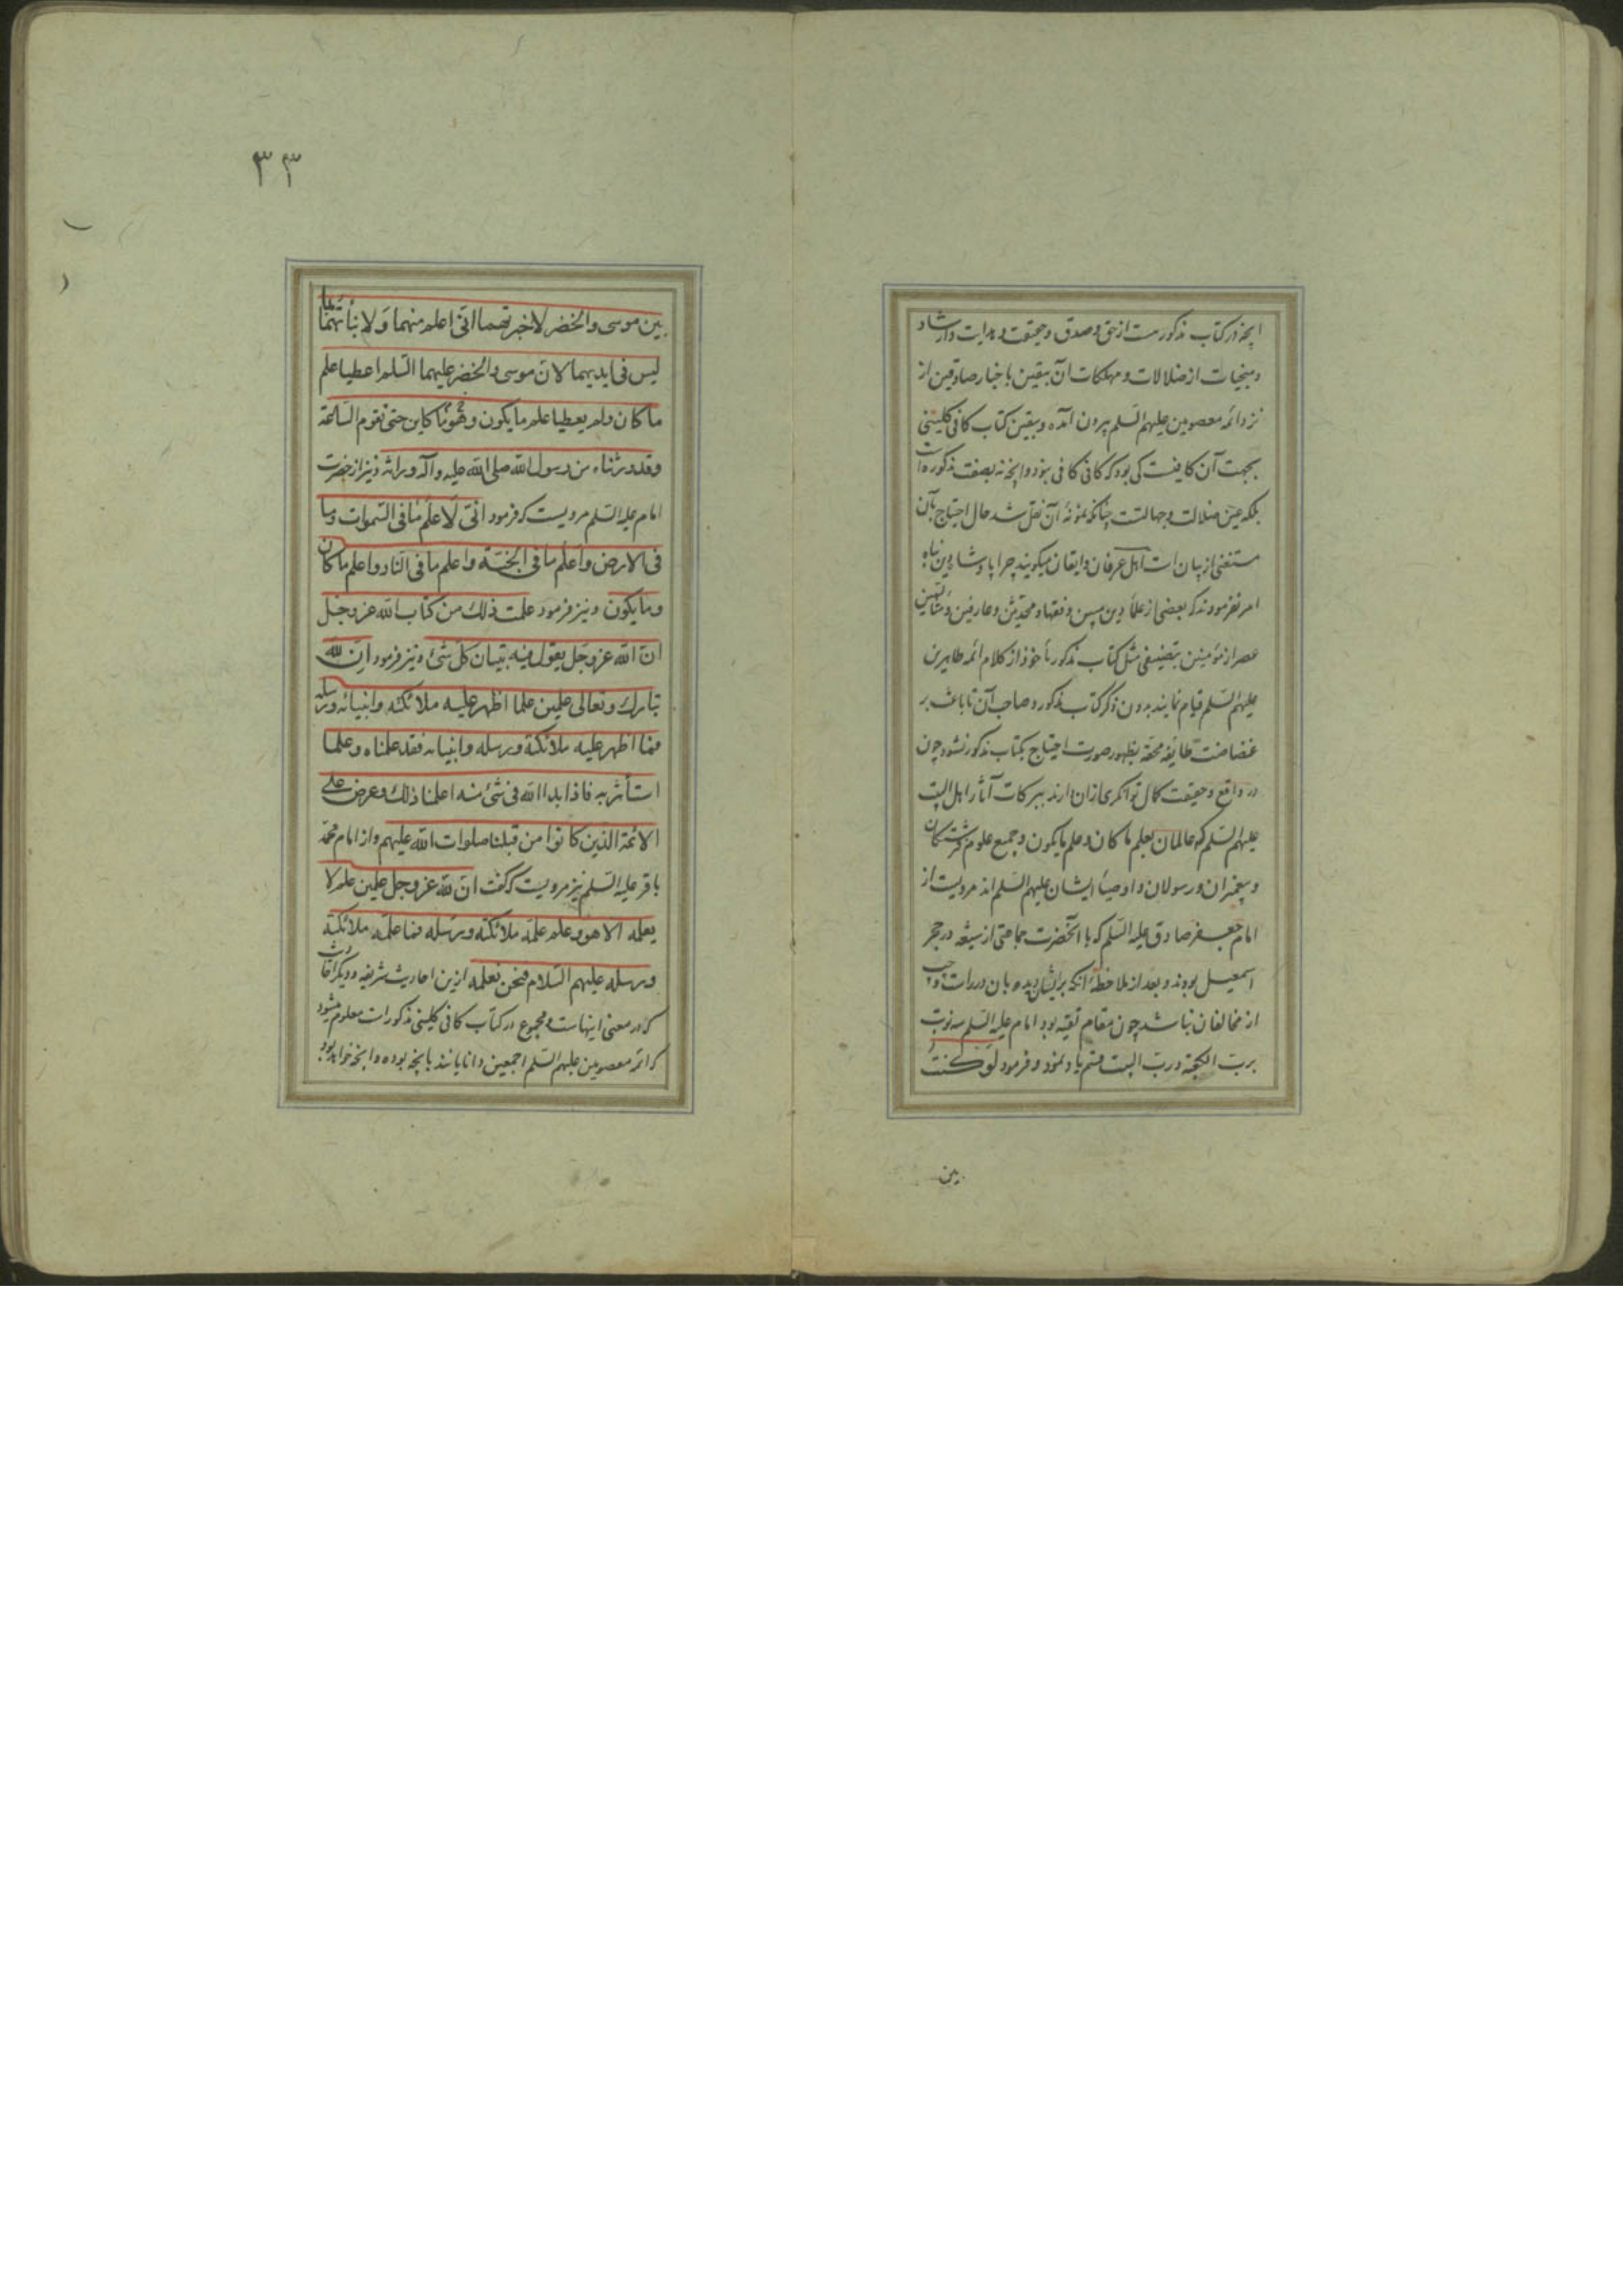 آنچه در کتاب مذکورست از حق و صدق و حقیقت و هدایت و ارشاد
و منجیات از ضلالات و مهلکات آن بیقین باخبار صادقین از
نزد ائمه معصومین علیهم السلم بیرون آمده و بیقین کتاب کافی کلینی
بجهت آن کافیست کی بود که کافی کافی نبود و آنچه نه بصفت مذکوره است
بلکه عین ضلالت و جهالتست چنانکه نمونهٔ آن نقل شد حال احتیاج بآن
مستغنی از بیان است اهل عرفان و ایقان میگویند چرا پادشاه دین پناه
امر نفرمودند که بعضی از علمأ دین مبین و فقها و محدثین و عارفین و متألهین
عصر از مؤمنین بتصنیفی مثل کتاب مذکور مأخوذ از کلام ائمه طاهرین
علیهم السلم قیام نمایند بدون ذکر کتاب مذکور و صاحب آن تا باعث بر
غضاضت طایفه محقه بظهور صورت احتیاج بکتاب مذکور نشود چون
در واقع و حقیقت کمال توانگری ازان دارند ببرکات آثار اهل البیت
علیهم السلم که عالمان بعلم ما کان و علم ما یکون و جمیع علوم فرشتگان
و پیغمبران و رسولان و اوصیأ ایشان علیهم السلم اند مرویست از
امام جعفر صادق علیه السلم که با آنحضرت جماعتی از شیعه در حجر
اسمعیل بودند و بعد از ملاحظهٔ آنکه بر ایشان دیده بان در راست و چپ
از مخالفان نباشد چون مقام تقیه بود امام علیه السلم سه نوبت
برب الکعبة و رب البیت قسم یاد نمود و فرمود لو کنت
بین
٣٣
بین موسی والخضر لاخبرتهما انی اعلم منهما ولانبأتهما بما
لیس فی ایدیهما لان موسی والخضر علیهما السلم اعطیا علم
ما کان ولم یعطیا علم ما یکون وما هو کاین حتی تقوم الساعة
وقد ورثناه من رسول الله صلی الله علیه وآله وراثة و نیز از حضرت
امام علیه السلم مرویست که فرمود انی لاعلم ما فی السموات وما
فی الارض واعلم ما فی الجنة واعلم ما فی النار واعلم ما کان
وما یکون و نیز فرمود علمت ذلك من کتاب الله عز وجل
ان الله عز وجل یقول فیه تبیان کل شئ و نیز فرمود ان لله
تبارك وتعالی علمین علما اظهر علیه ملائکته وانبیائه ورسله
فما اظهر علیه ملائکته ورسله وانبیائه فقد علمناه وعلما
استأثر به فاذا بدا الله فی شئ منه اعلمنا ذلك وعرض علی
الائمة الذین کانوا من قبلنا صلوات الله علیهم و از امام محمد
باقر علیه السلم نیز مرویست که گفت ان لله عز وجل علمین علم لا
یعلمه الا هو وعلم علمه ملائکته ورسله فما علمه ملائکته
ورسله علیهم السلام فنحن نعلمه ازین احادیث شریفه و دیگر احادیث
که در معنی اینهاست و مجموع در کتاب کافی کلینی مذکورات معلوم میشود
که ائمه معصومین علیهم السلم اجمعین دانایانند بآنچه بوده و آنچه خواهد بود